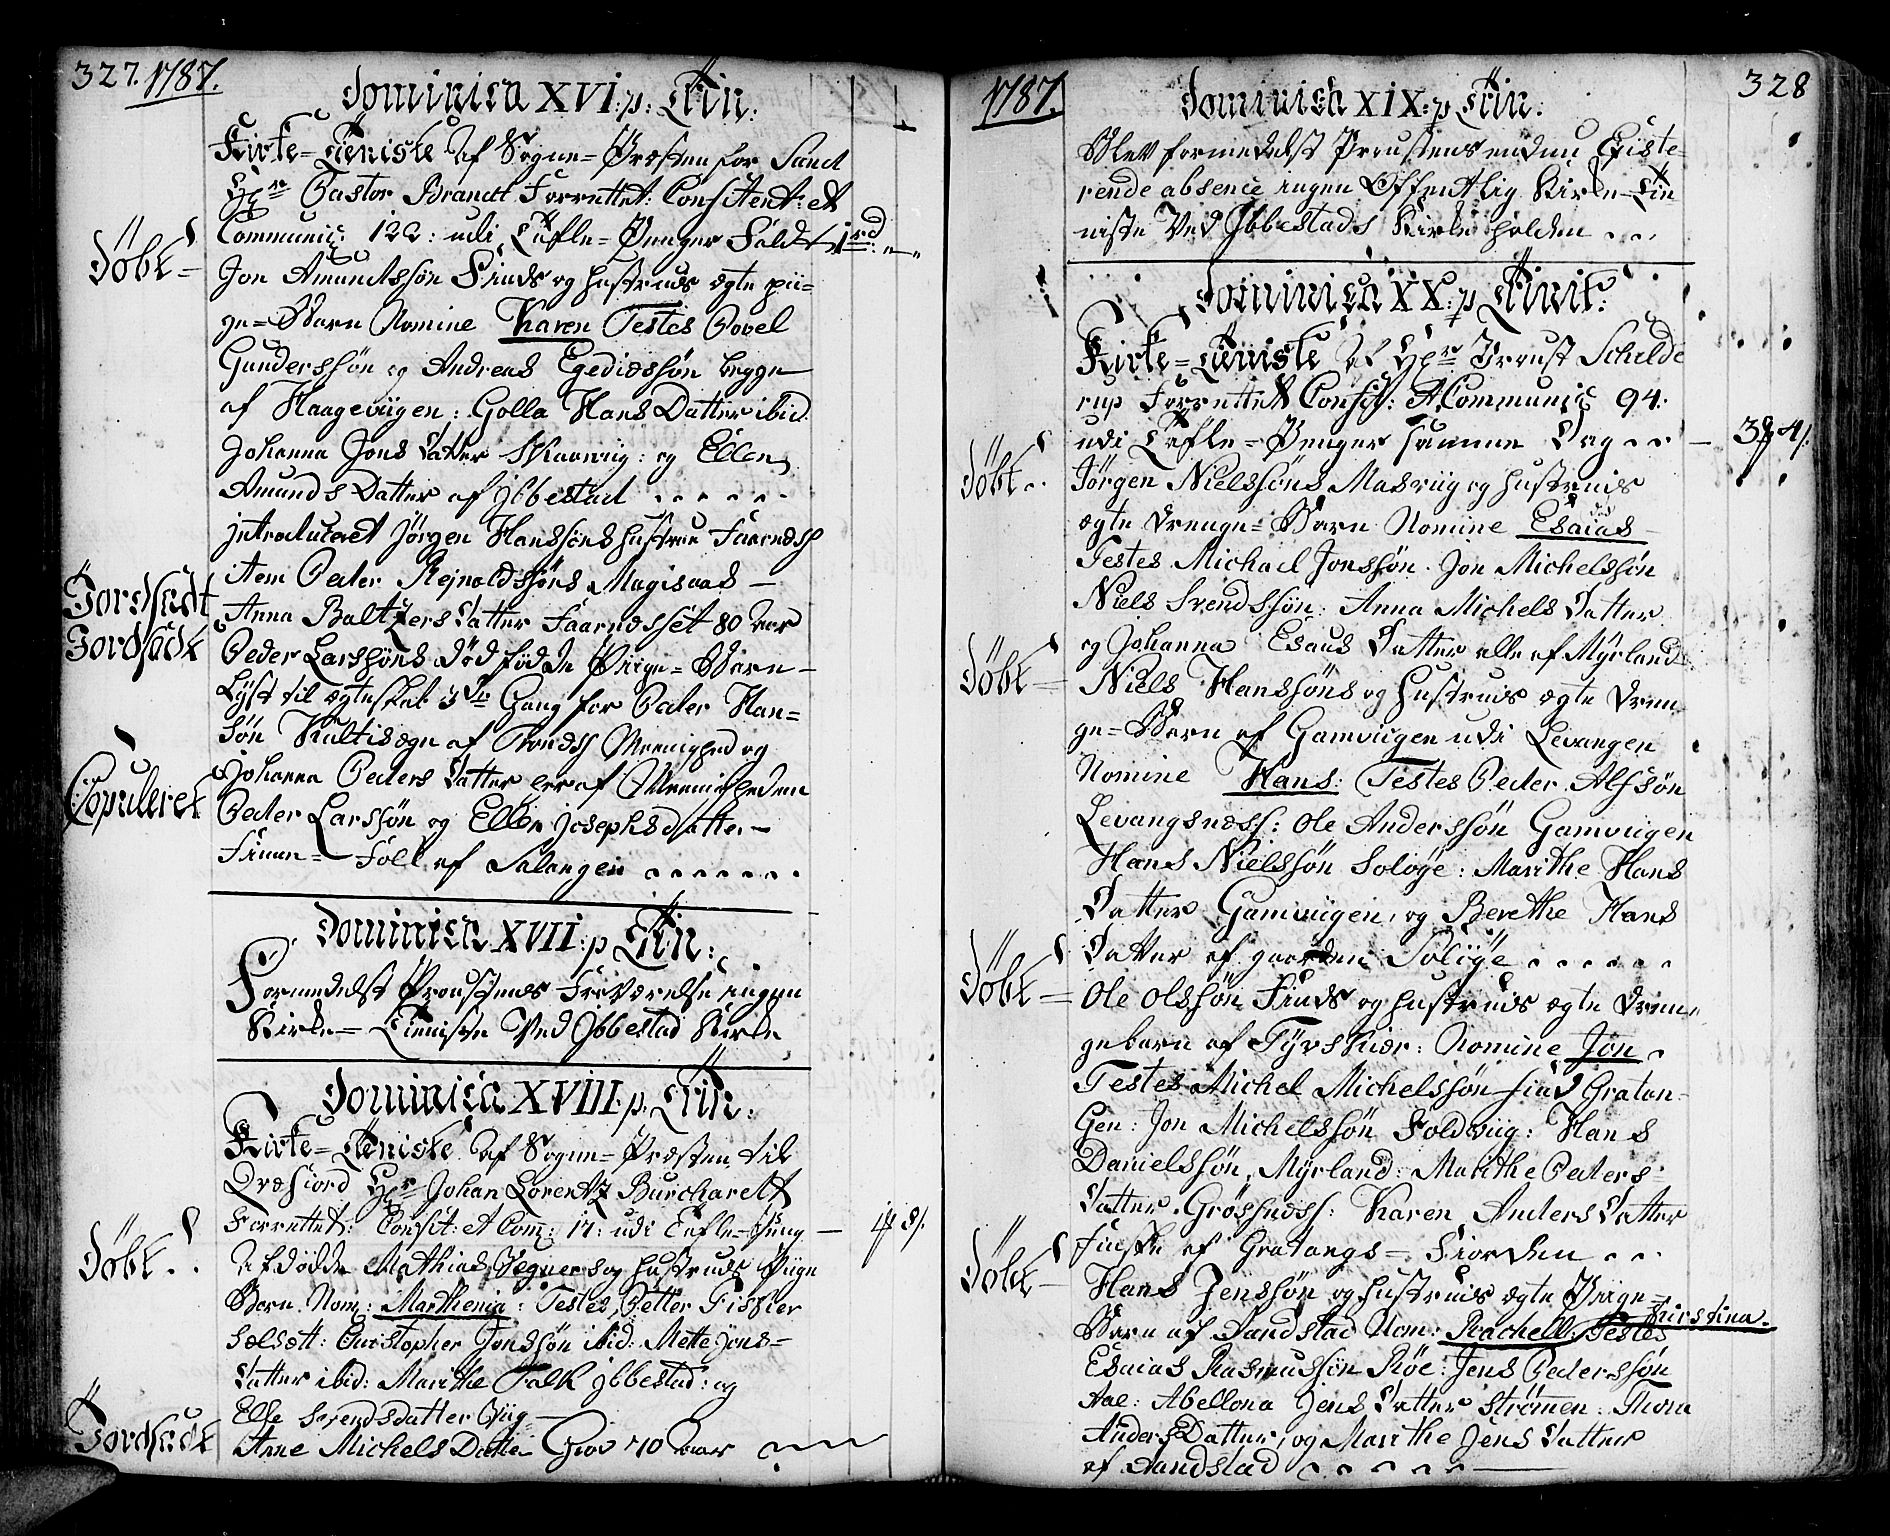 327. 1787.
Dominica XVI: p: Trin:
Kirke=Tieniste af Sogne=Præsten for Sand
Hr Pastor Brandt Forrettet: Consitent: et
Communic: 122: udi Tafle=Penger Faldt 1 rd
Døbt=
Jon Amundssøn Finds og Hustrues ægte pii=
ge=Barn Nomine Karen Testes Povel
Gunderssøn og Andreas Egediæssøn begge
af Haagevigen: Golla Hans Datter ibid
Johanna Jons Datter Skaarviig: og Ellen
Amunds Datter af Jbbestad
jntroduceret Jørgen Hanssøns Hustrue
item Peder Rejnoldssøns
Jordfæst
Anna Baltzers Datter 80 Aar
Jordfæst
Peder Larssøns død fødde Piige=Barn
Lyst til ægteskab 3die Gang for Peder Han=
søn af Meenighed og
Johanna Peders Datter her af Meenigheden
Copuleret
Peder Larssøn og Ellen Josephsdatter
Finne=Folk af Salangen
Dominica XVII: p Trin:
Formedelst Proustens Fraværelse ingen
Kirke=Tieniste Ved Jbbestad Kirke
Dominica XVIII: p. Trin:
Kirke=Tieniste af Sogne=Præsten til
Qvæfiord Hr Johan Lorentz Burchardt
Forrettet: Consit: et Com: 17: udi Tafle=Peng
Døbt
Afdødde Mathias Wegners og Hustrues Piige
Barn. Nom: Marthenia: Testes, Petter Fischer
Christopher Jonssøn ibid: Mette Jons=
Datter ibid: Marithe Falk Jbbestad: og
Else Svendsdatter
Jordfæst
Ane Michels Datter Grov 70 Aar
1787. 328
Dominica XIX: p Trin:
Blev formedelst Proustens endnu
rende absence ingen Offentlig Kirke=Tie
niste Ved Jbbestads Kirke holden
Dominica XX: p Trinit:
Kirke=Tieniste af Hr Proust Schelde
rup Forrettet Consit: et Communic 94:
udi Tafle=Penger samme Dag
Døbt
Jørgen Nielssøns Masviig og Hustrues
ægte Drenge=Barn Nomine Esaias
Testes Michael Jonssøn. Jon Michelssøn
Niels Svendssøn: Anna Michels Datter
og Johanna Esaus Datter alle af Myrland
Døbt=
Niels Hanssøns og Hustrues ægte Dren
ge=Barn af Gamviigen udi Levangen
Nomine Hans: Testes Peder Alfssøn
Levangsnæss: Ole Anderssøn Gamviigen
Hans Nielssøn Soløye: Marithe Hans
Datter Gamviigen, og Berethe Hans
Datter af gaarden Soløye
Døbt=
Ole Olssøn Finds og Hustrues ægte Dren
gebarn af Fyrskiær: Nomine Jon
Testes Michel Michelssøn find Gratan=
gen: Jon Michelssøn Foldviig: Hans
Danielssøn, Myrland: Marithe Peders=
Datter. Grøssnæss: Karen Anders Datter
finske af Gratangs=Fiorden
Døbt
Hans Jenssøn og Hustrues ægte Piige=
Kirstina.
Barn af Aandstad Nom: Rachell: Testes
Esaias Rasmussøn Røe: Jens Pederssøn
Aae: Abellona Jens Datter Strømen: Thora
Anders Datter, og Marithe Jens Datter
af Aandstad